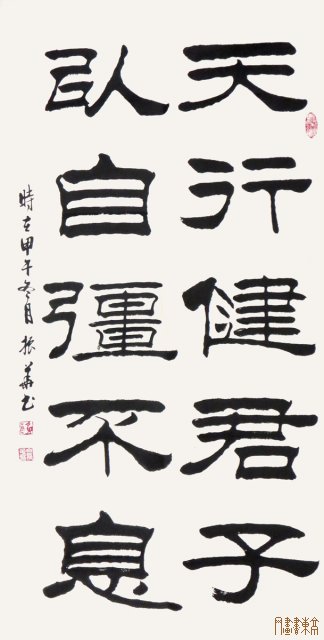 天行健君子
以自彊不息
時在甲午冬月振華书